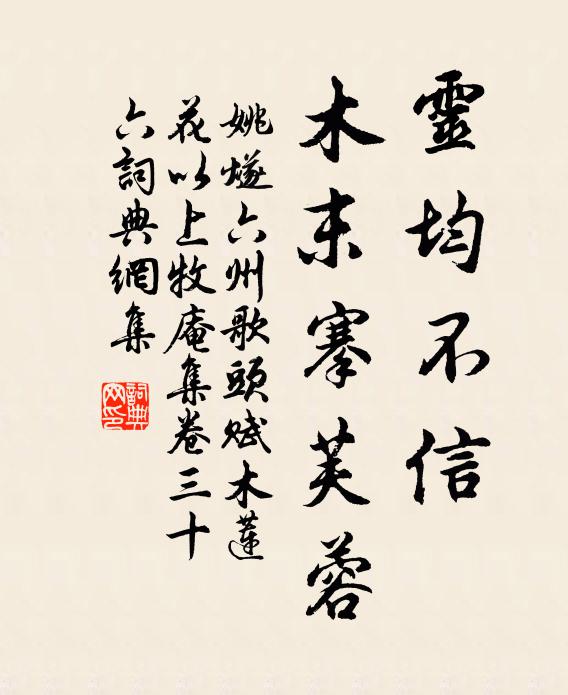 靈均不信
木末搴芙蓉
姚燧六州歌頭賦木蓮
花以上牧庵集卷三十
六詞典網集
詞典
网印